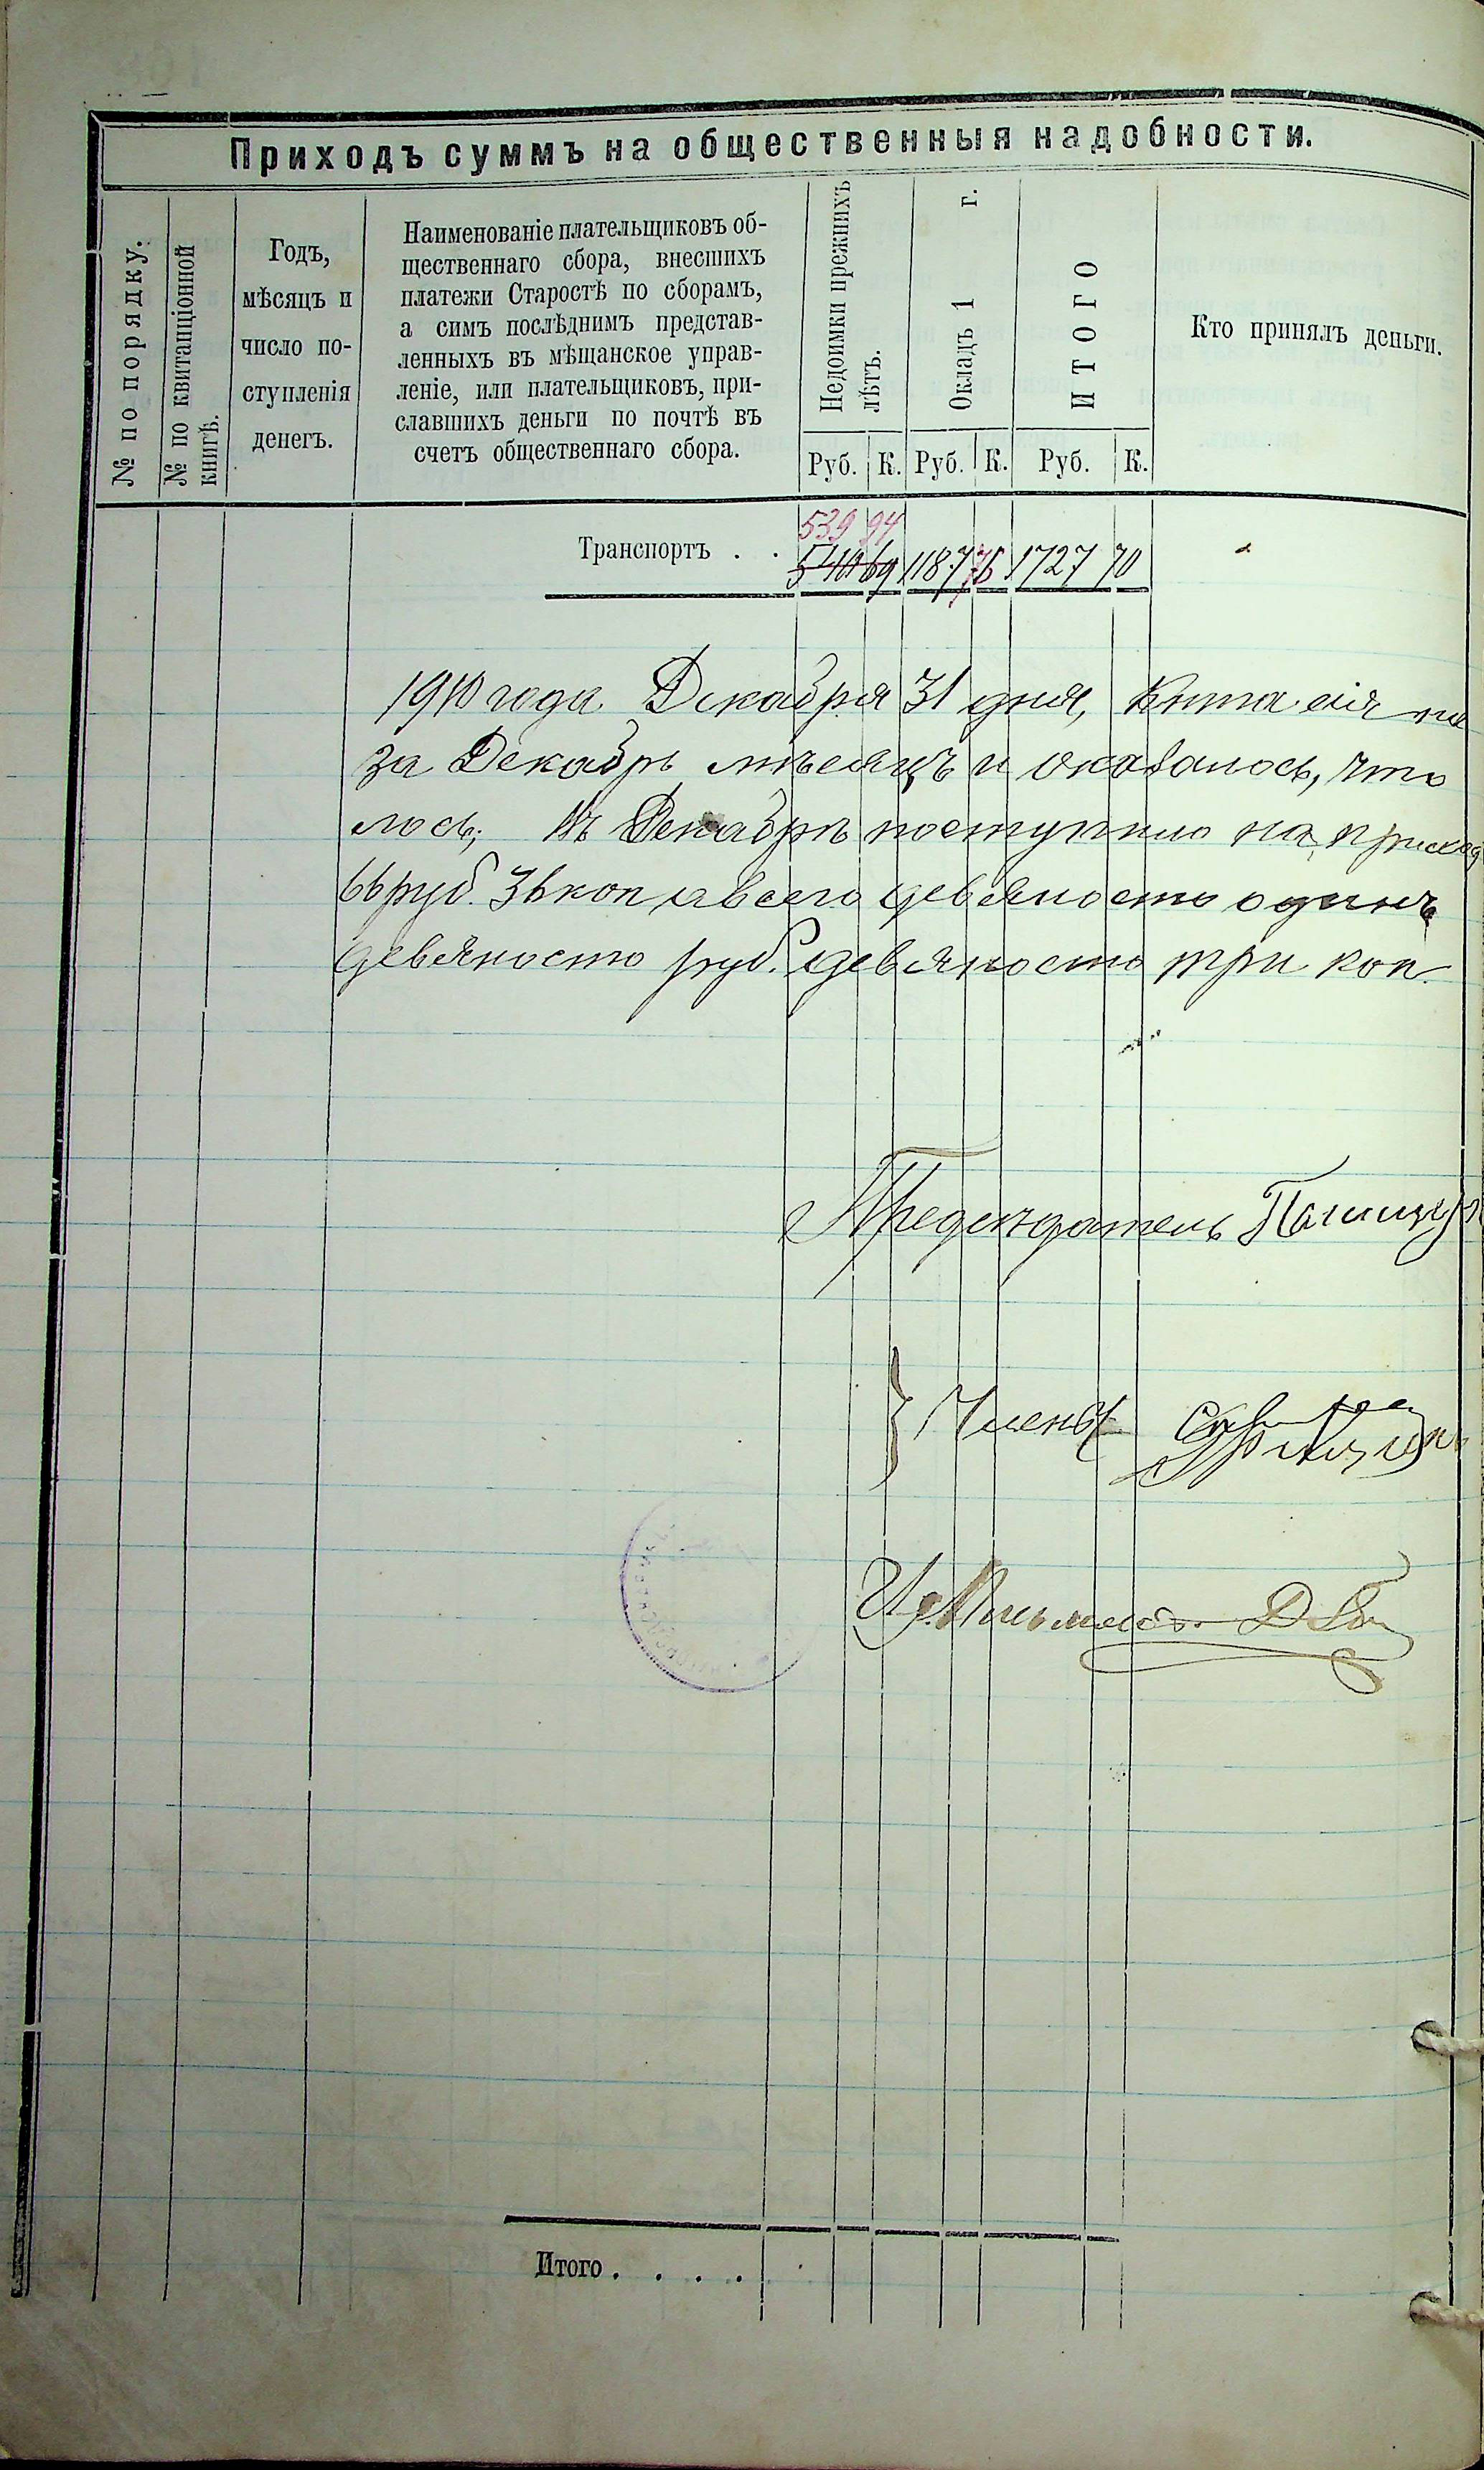 Приходъ суммъ на общественныя надобности.
№ по порядку.
№ по квитанціонной
книгѣ.
Годъ,
мѣсяцъ и
число по-
ступленія
денегъ.
Наименованіе плательщиковъ об-
щественнаго сбора, внесшихъ
платежи Старостѣ по сборамъ,
а симъ послѣднимъ представ-
ленныхъ въ мѣщанское управ-
леніе, или плательщиковъ, при-
славшихъ деньги по почтѣ въ
счетъ общественнаго сбора.
Недоимки прежнихъ
лѣтъ.
Окладъ 1 г.
ИТОГО
Кто принялъ деньги.
Руб. К. Руб. К. Руб. К.
539 94
Транспортъ . . 540 69 1187 76 1727 70
1910 года Декабря 31 дня, Книга сія
за Декабрь мѣсяцъ и оказалось, что
лось; Въ Декабрѣ поступило на приход
66 руб. 36 коп, а всего девяносто одинъ
девяносто руб. девяносто три коп.
Предсѣдатель
Члены
Итого . . . .